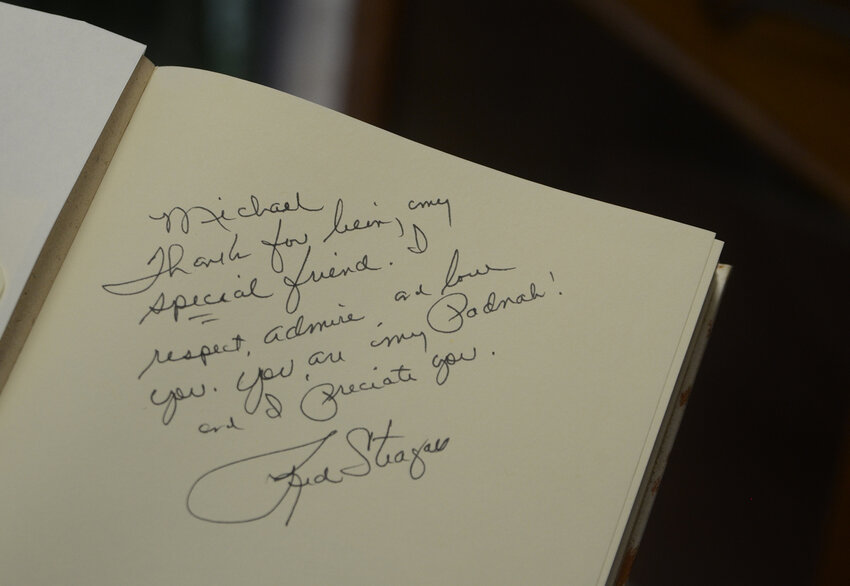 Michael
Thank for being my
special friend. I
respect, admire and love
you. You are my Padnah!
and I Preciate you.
Red Steagall